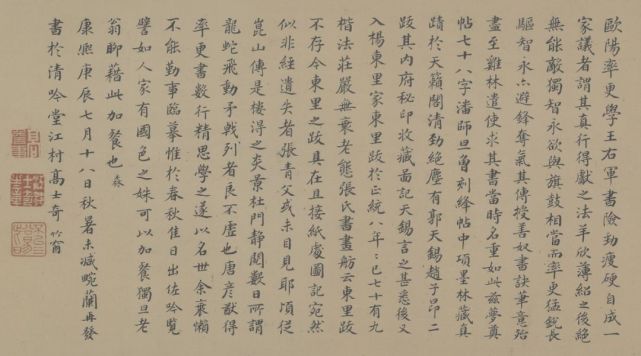 歐陽率更學王右軍書險勁瘦硬自成一
家議者謂其真行得獻之法羊欣薄紹之後絕
無能敵獨智永欲與旗鼓相當而率更猛銳長
驅智永亦避鋒奪氣其傳授善奴書訣筆意殆
盡至雞林遣使求其書當時名重如此茲夢奠
帖七十八字潘師旦魯刻絳帖中項墨林藏真
蹟於天籟閣清勁絕塵有郭天錫趙子昂二
跋其內府秘印收藏畵記天錫言之甚悉後又
入楊東里家東里跋於正統八年己七十有九
楷法莊嚴無衰老態張氏書畫舫云東里跋
不存今東里之跋具在且接紙處圖記宛然
似非經遺失者張青父或未目見耶頃從
崑山傳是樓淂之炎景杜門靜閱數日所謂
龍蛇飛動矛戟列者良不虛也唐彥猷得
率更書數行精思學之遂以名世余衰懶
不能勤事臨摹惟於春秋佳日出佐吟覽
譬如人家有國色之姝可以加餐獨旦老
翁聊藉此加餐也
康熙庚辰七月十八日秋暑未減畹蘭再發
書於清吟堂江村高士奇